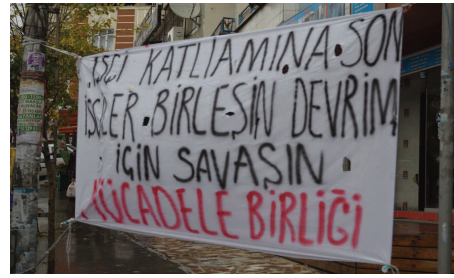 İŞÇİ KATLİAMINA SON
İŞÇİLER BİRLEŞİN DEVRİM
İÇİN SAVAŞIN
MÜCADELE BİRLİĞİ